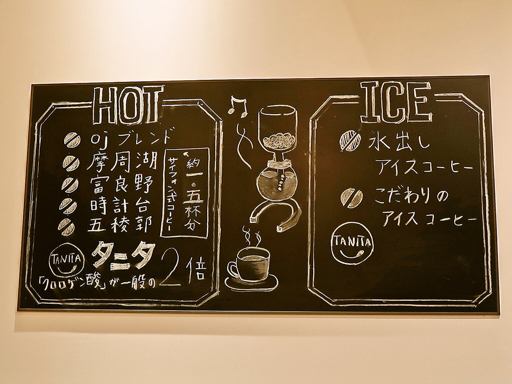 HOT
ojブレンド
摩周湖
富良野
時計台
五稜郭
約一・五杯分
サイフォン式コーヒー
TANITA
タニタ
「クロロゲン酸」が一般の2倍
ICE
水出し
アイスコーヒー
こだわりの
アイスコーヒー
TANITA